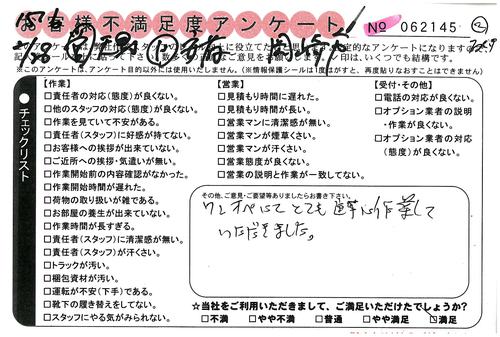 お客様不満足度アンケート
No 062145
※このアンケートは、アンケート目的以外には使用いたしません。(※情報保護シールは1度はがすと、再度貼りなおすことはできません。
チェックリスト
【作業】
□責任者の対応(態度)が良くない。
□他のスタッフの対応(態度)が良くない。
□作業を見ていて不安がある。
□責任者(スタッフ)に好感が持てない。
□お客様への挨拶が出来ていない。
□ご近所への挨拶・気遣いが無い。
□作業開始前の内容確認がなかった。
□作業開始時間が遅れた。
□荷物の取り扱いが雑である。
□お部屋の養生が出来ていない。
□作業時間が長すぎる。
□責任者(スタッフ)に清潔感が無い。
□責任者(スタッフ)が汗くさい。
□トラックが汚い。
□梱包資材が汚い。
□運転が不安(下手)である。
□靴下の履き替えをしてない。
□スタッフにやる気がみられない。
【営業】
□見積もり時間に遅れた。
□見積もり時間が長い。
□営業マンに清潔感が無い。
□営業マンが煙草くさい。
□営業マンが汗くさい。
□営業態度が良くない。
□営業の説明と作業が一致してない。
【受付・その他】
□電話の対応が良くない。
□オプション業者の説明
・作業が良くない。
□オプション業者の対応
(態度)が良くない。
その他、ご意見・ご要望等ありましたらお書き下さい。
ワンオペにてとても 作業して
いただきました。
☆当社をご利用いただきまして、ご満足いただけたでしょうか?
□不満 □やや不満 □普通 □やや満足 □満足